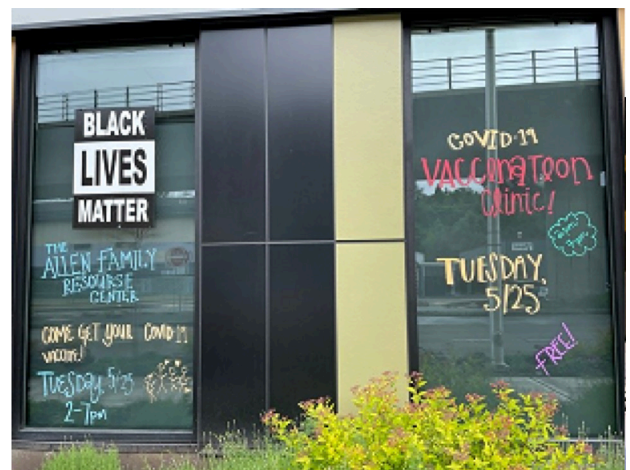 BLACK
LIVES
MATTER
THE
ALLEN FAMILY
RESOURSE
CENTER
COME GET YOUR COVID-19
VACCINE!
TUESDAY. 5/25
2-7pm
COVID-19
VACCINATION
Clinic!
TUESDAY,
5/25
FREE!